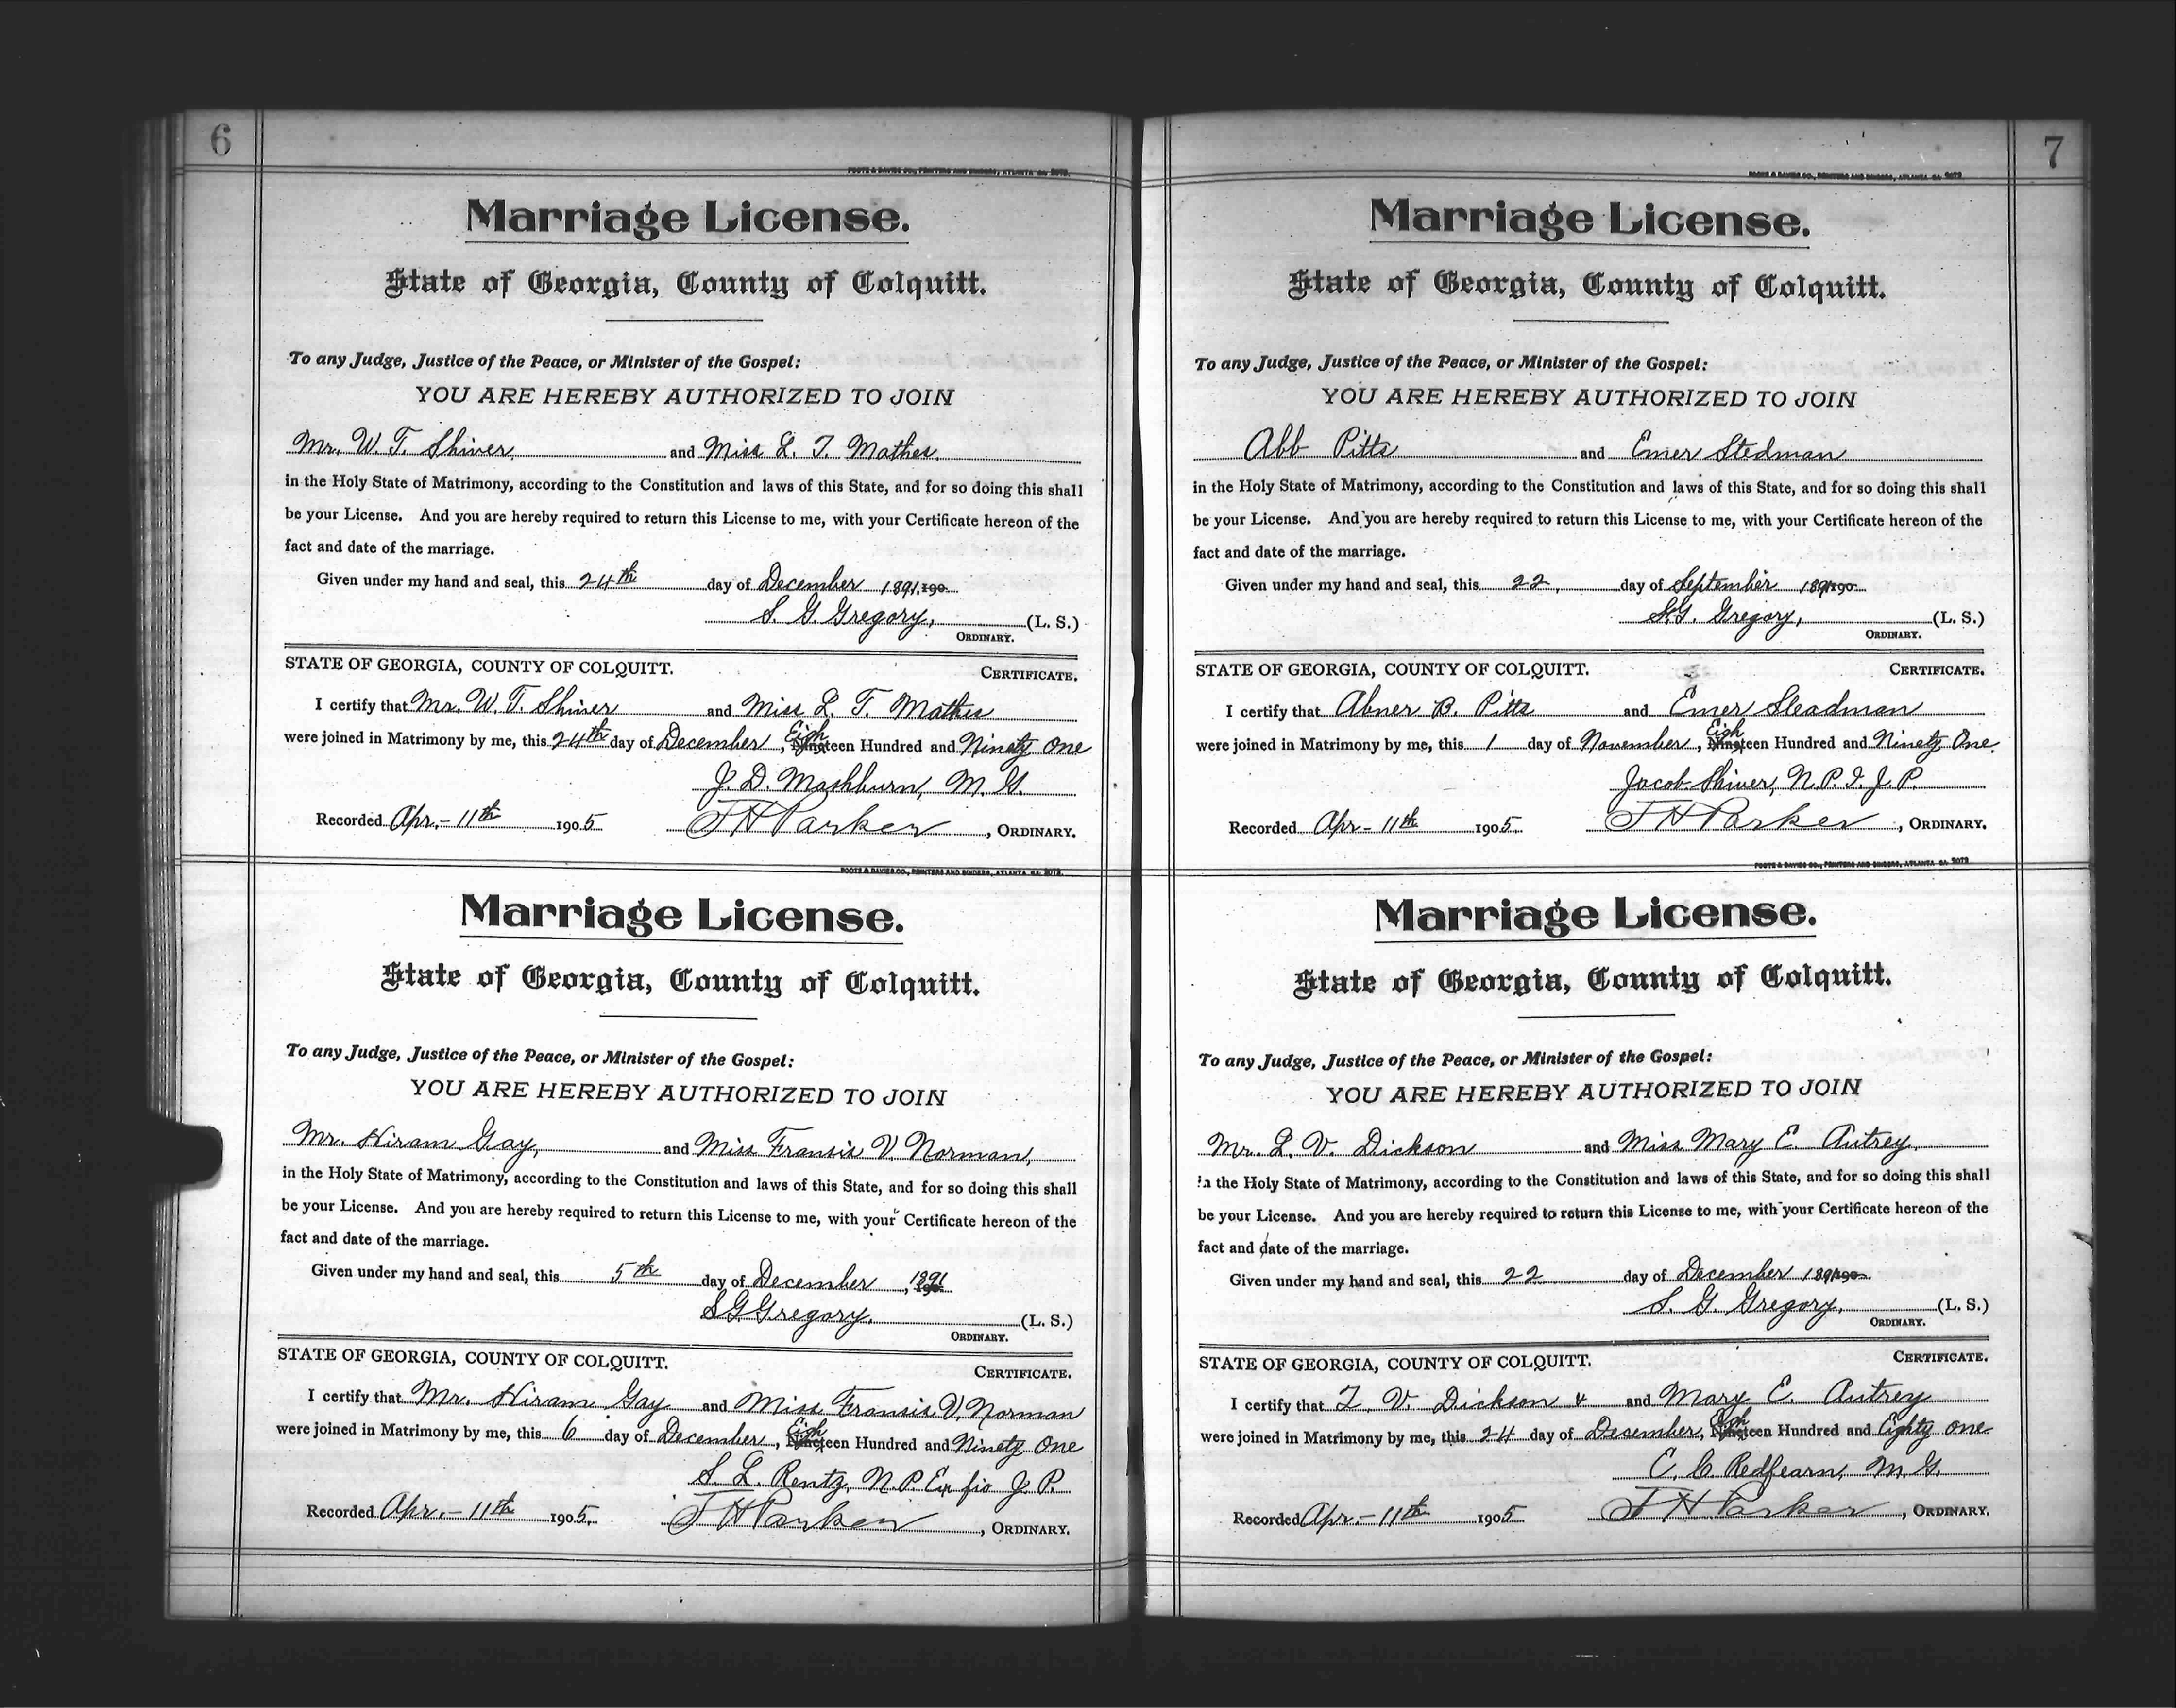 6
FOOTE & DAVIES CO., PRINTERS AND BINDERS, ATLANTA GA.
Marriage License.
State of Georgia, County of Colquitt.
To any Judge, Justice of the Peace, or Minister of the Gospel:
YOU ARE HEREBY AUTHORIZED TO JOIN
Mr. W. T. Shiver and Miss L. T. Mathes.
in the Holy State of Matrimony, according to the Constitution and laws of this State, and for so doing this shall
be your License. And you are hereby required to return this License to me, with your Certificate hereon of the
fact and date of the marriage.
Given under my hand and seal, this 24th day of December 1891, 190
S. G. Gregory, (L. S.)
ORDINARY.
STATE OF GEORGIA, COUNTY OF COLQUITT.
CERTIFICATE.
I certify that Mr. W. T. Shiver and Miss L. T. Mathis
were joined in Matrimony by me, this 24th day of December, Eighteen Hundred and Ninety One
J. D. Mashburn, M. G.
Recorded Apr.- 11th 1905 J H Parker, ORDINARY.
FOOTE & DAVIES CO., PRINTERS AND BINDERS, ATLANTA GA.
Marriage License.
State of Georgia, County of Colquitt.
To any Judge, Justice of the Peace, or Minister of the Gospel:
YOU ARE HEREBY AUTHORIZED TO JOIN
Mr. Hiram Gay, and Miss Fransis V. Norman,
in the Holy State of Matrimony, according to the Constitution and laws of this State, and for so doing this shall
be your License. And you are hereby required to return this License to me, with your Certificate hereon of the
fact and date of the marriage.
Given under my hand and seal, this 5th day of December, 1891
S G Gregory, (L. S.)
ORDINARY.
STATE OF GEORGIA, COUNTY OF COLQUITT.
CERTIFICATE.
I certify that Mr. Hiram Gay and Miss Fransis V. Norman
were joined in Matrimony by me, this 6 day of December, Eighteen Hundred and Ninety One
S. L. Rentz, N. P. Ex fio J. P.
Recorded Apr.- 11th 1905. J H Parker, ORDINARY.
7
FOOTE & DAVIES CO., PRINTERS AND BINDERS, ATLANTA GA.
Marriage License.
State of Georgia, County of Colquitt.
To any Judge, Justice of the Peace, or Minister of the Gospel:
YOU ARE HEREBY AUTHORIZED TO JOIN
Abb Pitts and Emer Stedman
in the Holy State of Matrimony, according to the Constitution and laws of this State, and for so doing this shall
be your License. And you are hereby required to return this License to me, with your Certificate hereon of the
fact and date of the marriage.
Given under my hand and seal, this 22, day of September 1891 190
S. G. Gregory, (L. S.)
ORDINARY.
STATE OF GEORGIA, COUNTY OF COLQUITT.
CERTIFICATE.
I certify that Abner B. Pitts and Emer Steadman
were joined in Matrimony by me, this 1 day of November, Eighteen Hundred and Ninety One.
Jacob Shiver, N. P. & J. P.
Recorded Apr - 11th 1905. J H Parker, ORDINARY.
FOOTE & DAVIES CO., PRINTERS AND BINDERS, ATLANTA GA.
Marriage License.
State of Georgia, County of Colquitt.
To any Judge, Justice of the Peace, or Minister of the Gospel:
YOU ARE HEREBY AUTHORIZED TO JOIN
Mr. L. V. Dickson and Miss Mary E. Autrey,
in the Holy State of Matrimony, according to the Constitution and laws of this State, and for so doing this shall
be your License. And you are hereby required to return this License to me, with your Certificate hereon of the
fact and date of the marriage.
Given under my hand and seal, this 22 day of December 1891 190
S. G. Gregory, (L. S.)
ORDINARY.
STATE OF GEORGIA, COUNTY OF COLQUITT.
CERTIFICATE.
I certify that L. V. Dickson & and Mary E. Autrey
were joined in Matrimony by me, this 24 day of Desember, Eighteen Hundred and Eighty One
E. C. Redfearn, M. G.
Recorded Apr.- 11th 1905 J H Parker, ORDINARY.